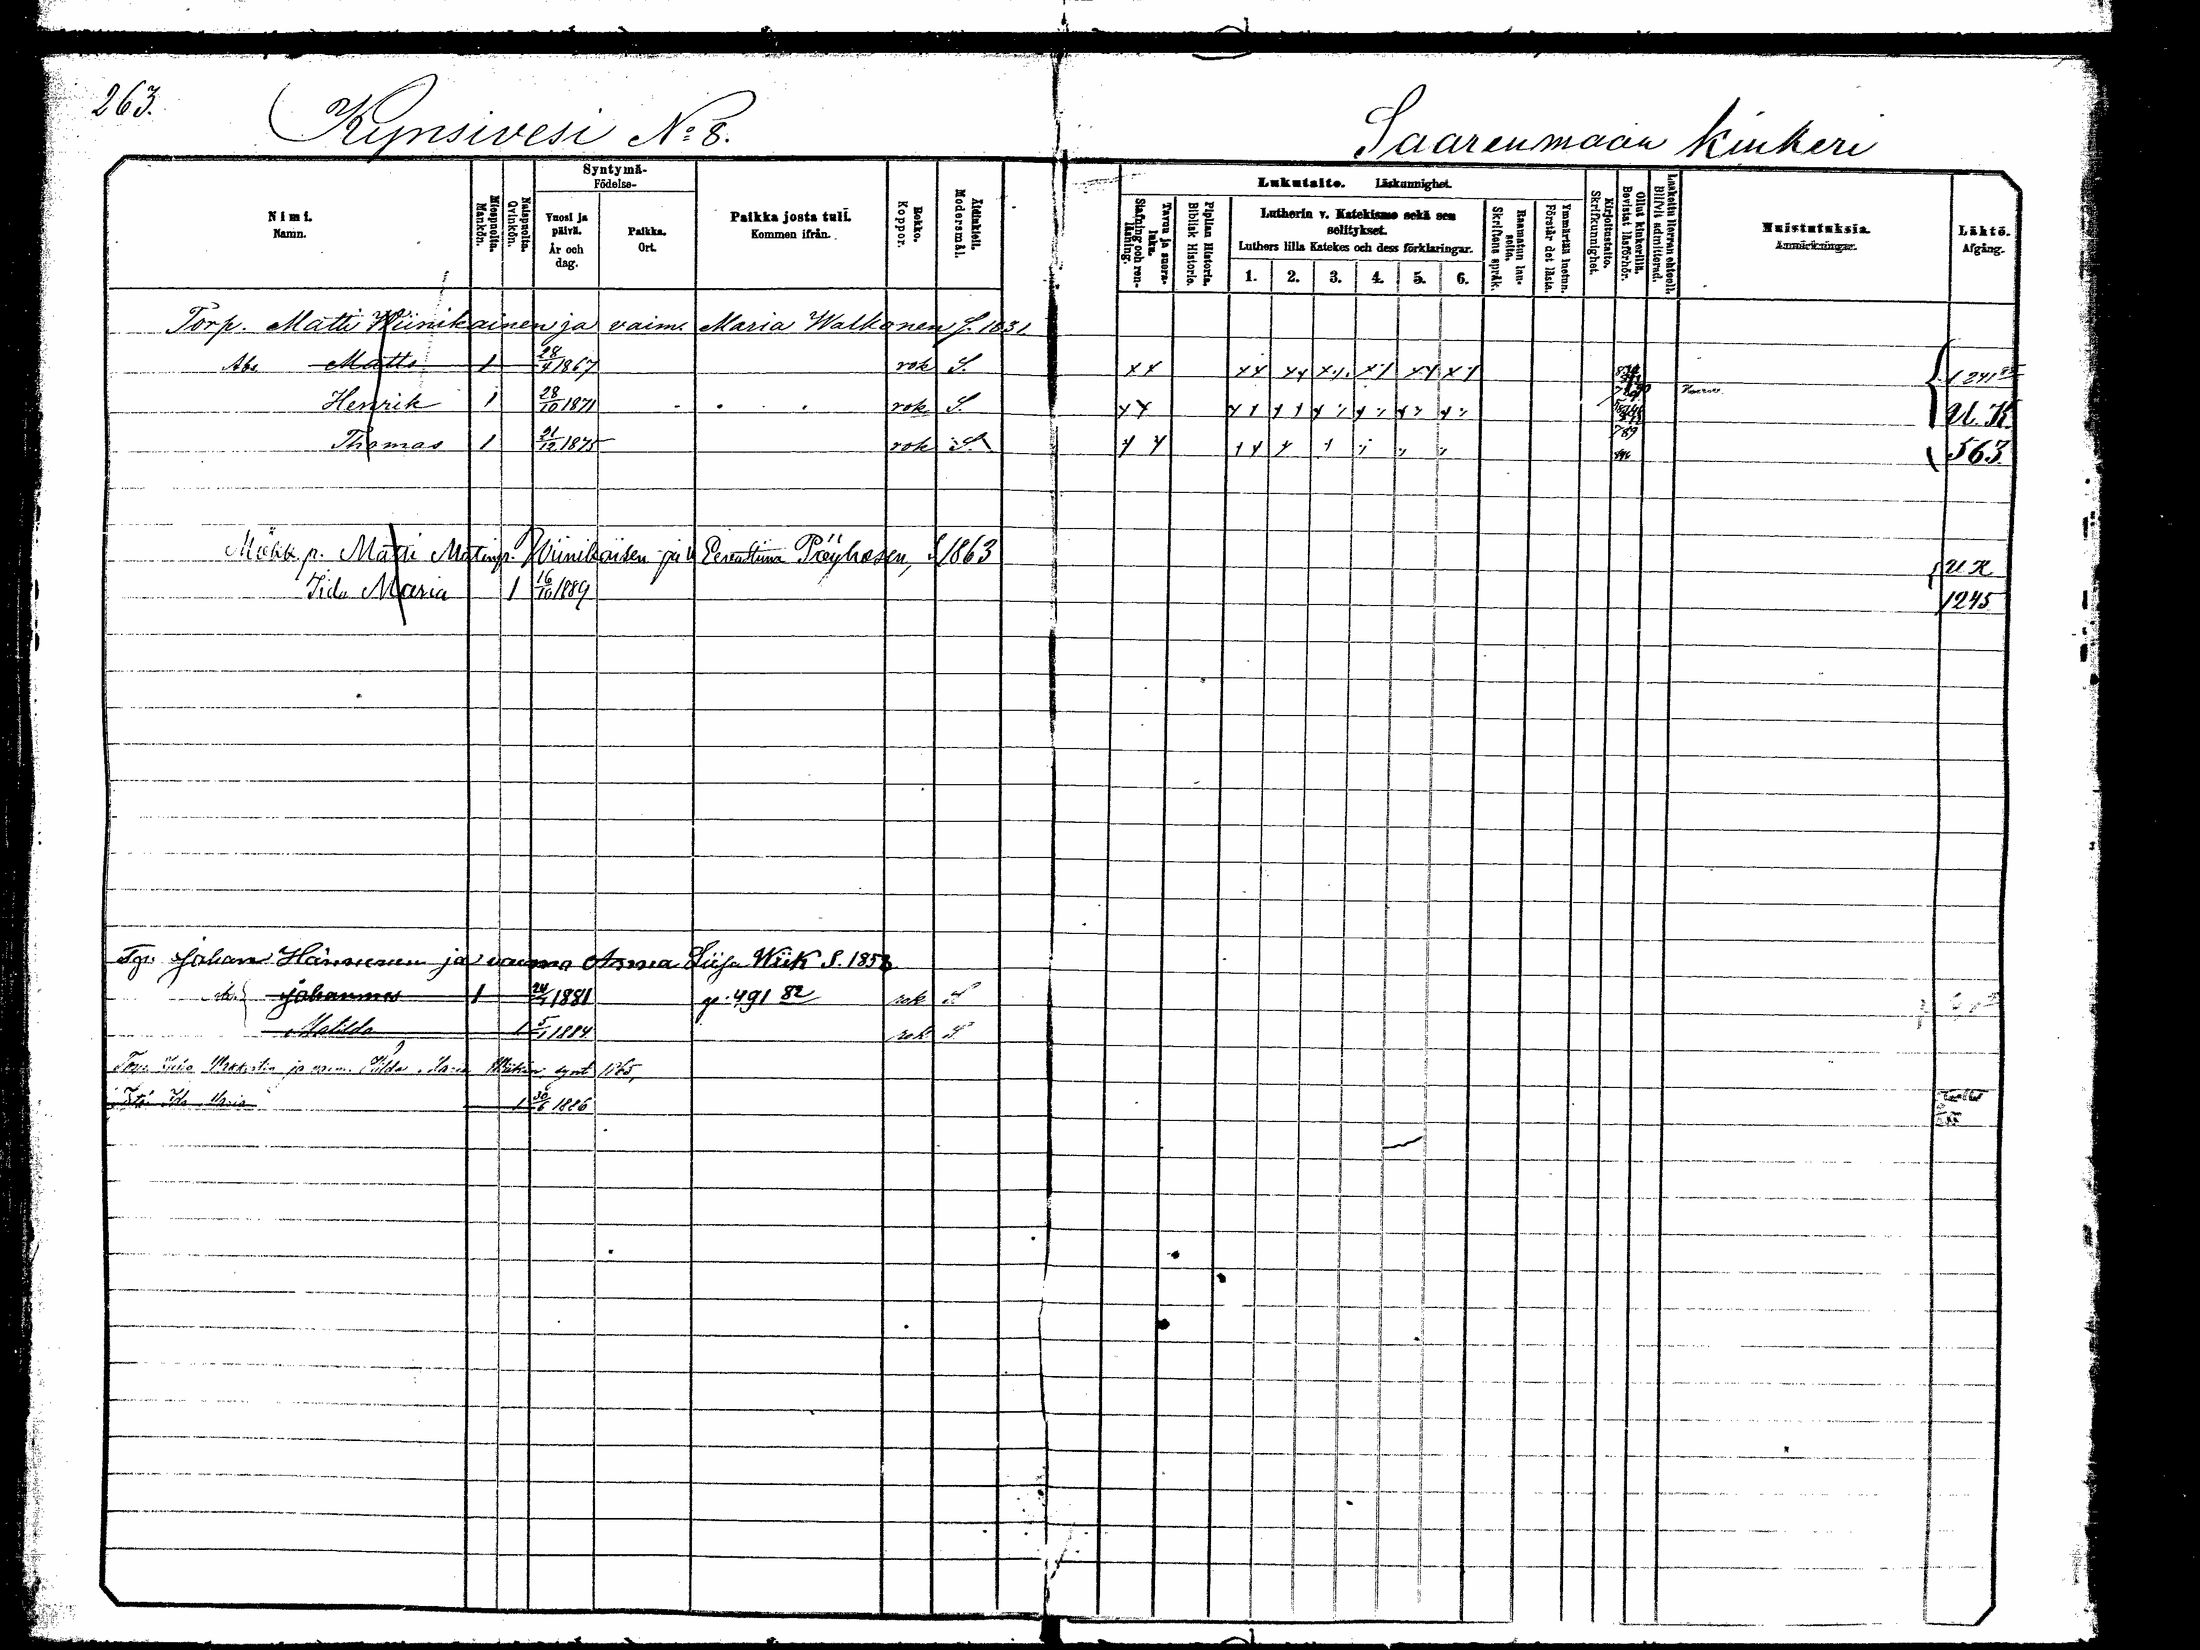 263.
Kynsivesi No: 8.
Saarenmaan kinkeri
Nimi.
Namn.
Miespuolia.
Mankön.
Naispuolia.
Qvinkön.
Syntymä-
Födelse-
Vuosi ja päivä.
År och dag.
Paikka.
Ort.
Paikka josta tuli.
Kommen ifrån.
Rokko.
Koppor.
Äidinkieli.
Modersmål.
Lukutaito. Läskunnighet.
Tavuu ja suora- luku.
Stafning och ren- läsning.
Piplian Historia.
Biblisk Historie.
Lutherin v. Katekismo sekä sen
selitykset.
Luthers lilla Katekes och dess förklaringar.
1. 2. 3. 4. 5. 6.
Raamatun lau- seita.
Skriftens språk.
Ymmärtää luetun.
Förstår det lästa.
Kirjoitustaito.
Skrifkunnighet.
Ollut kinkerillä.
Bevistat läsförhör.
Laskettu Herran ehtooll.
Blifvit admitterad.
Muistutuksia.
Anmärkningar.
Lähtö.
Afgång.
Torp. Matti Wiinikainen ja vaim. Maria Walkonen S. 1831
Matts 1 28/7 1867 rok S. 1241
Henrik 1 28/10 1871 rok S. U. K.
Thomas 1 21/12 1875 rok S. 563
Mökk. p. Matti Matinp. Wiinikaisen ja v. Eeva Stiina Pöyhösen, S 1863 U K
Iida Maria 1 16/10 1889 1245
Johan Hännunen ja vaimo Anna Liisa Wiik S. 1858
Johannes 1 1881 p. 491 82 rok S
Matilda 1 5/1 1884 rok S
ja Maria synt 1865,
Ida Maria 1 30/6 1886